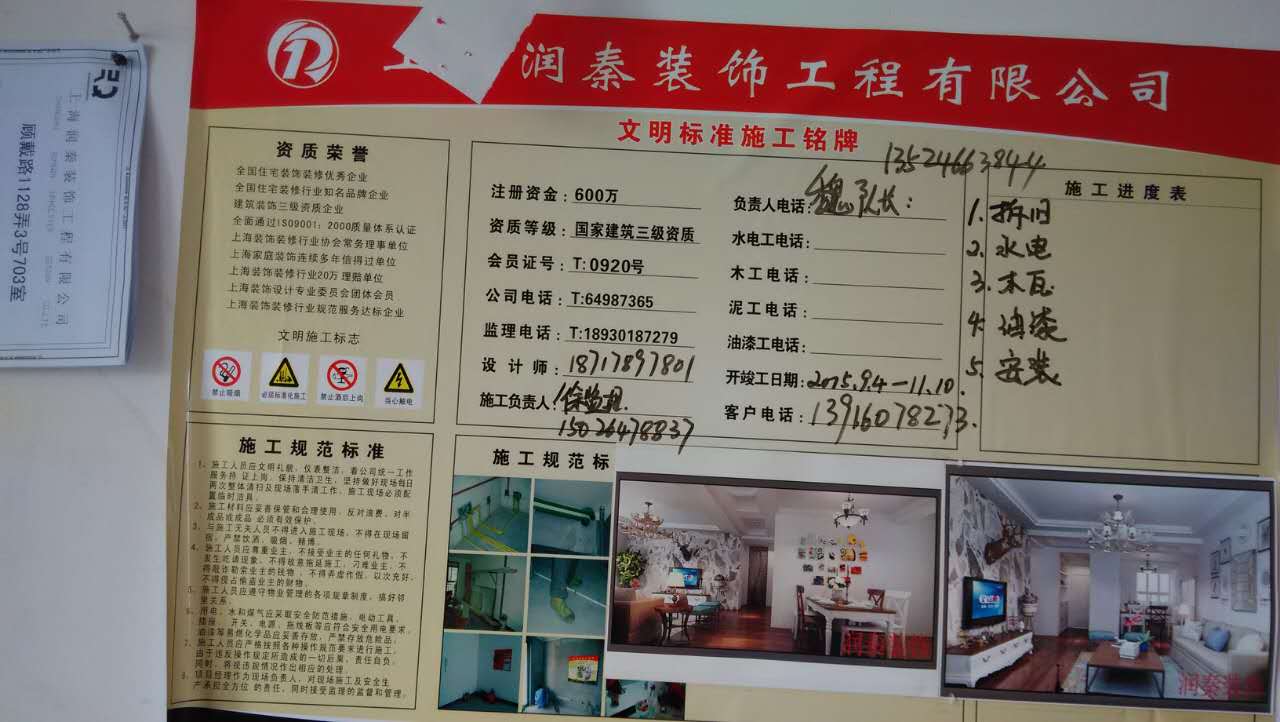 润秦装饰工程有限公司
文明标准施工铭牌
上海润秦装饰工程有限公司
顾戴路1128弄3号703室
资质荣誉
全国住宅装饰装修优秀企业
全国住宅装修行业知名品牌企业
建筑装饰三级资质企业
全面通过ISO9001：2000质量体系认证
上海装饰装修行业协会常务理事单位
上海家庭装饰连续多年信得过单位
上海装饰装修行业20万理赔单位
上海装饰设计专业委员会团体会员
上海装饰装修行业规范服务达标企业
文明施工标志
禁止吸烟
必须标准化施工
禁止酒后上岗
当心触电
注册资金：600万
资质等级：国家建筑三级资质
会员证号：T:0920号
公司电话：T:64987365
监理电话：T:18930187279
设计师：18717897801
施工负责人：徐监理
15026478837
13524663844
负责人电话：魏队长：
水电工电话：
木工电话：
泥工电话：
油漆工电话：
开竣工日期：2015.9.4—11.10.
客户电话：13916078273.
施工进度表
1.拆旧
2.水电
3.木瓦
4.油漆
5.安装
施工规范标准
1、施工人员应文明礼貌，仪表整洁，着公司统一工作
服务持 证上岗，保持清洁卫生，坚持做好现场每日
两次整体清扫及现场落手清工作，施工现场必须配
置临时洁具。
2、施工材料应妥善保管和合理使用，反对浪费，对半
成品或成品 必须有效保护。
3、与施工无关人员不得进入施工现场，不得在现场留
宿，严禁饮酒、吸烟、赌博。
4、施工人员应尊重业主，不接受业主的任何礼物，不
发生吃请现象，不得故意拖延施工，刁难业主，不
得敲诈勒索业主的钱物，不得弄虚作假，以次充好，
不得侵占偷盗业主的财物。
5、施工人员应遵守物业管理的各项规章制度，搞好邻
里关系。
6、用电、水和煤气应采取安全防范措施，电动工具，
插座、开关、电源、拖线板等应符合安全用电要求，
油漆等易燃化学品应妥善存放，严禁存放危险品。
7、施工人员应严格按照各种操作规范要求进行施工，
由于违反操作规定所造成的一切后果，责任自负，
同时，将视违规情况作出相应的处理。
8、项目经理作为现场负责人，对现场施工及安全生
产承担全方位 的责任，同时接受监理的监督和管理。
施工规范标
润秦装饰
润秦装饰